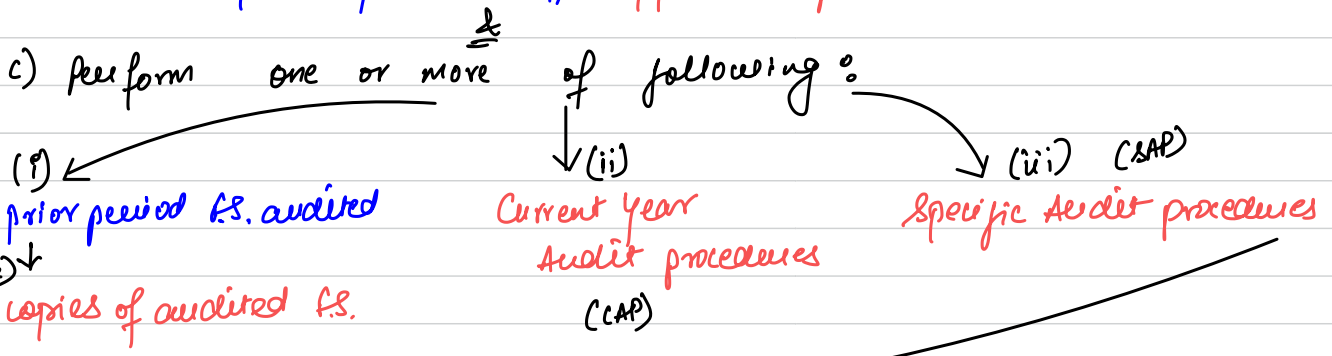 &
c) Perform one or more of following :
(i)
prior period f.s. audited
copies of audited f.s.
(ii)
Current year
Audit procedures
(CAP)
(iii) (SAP)
Specific Audit procedures